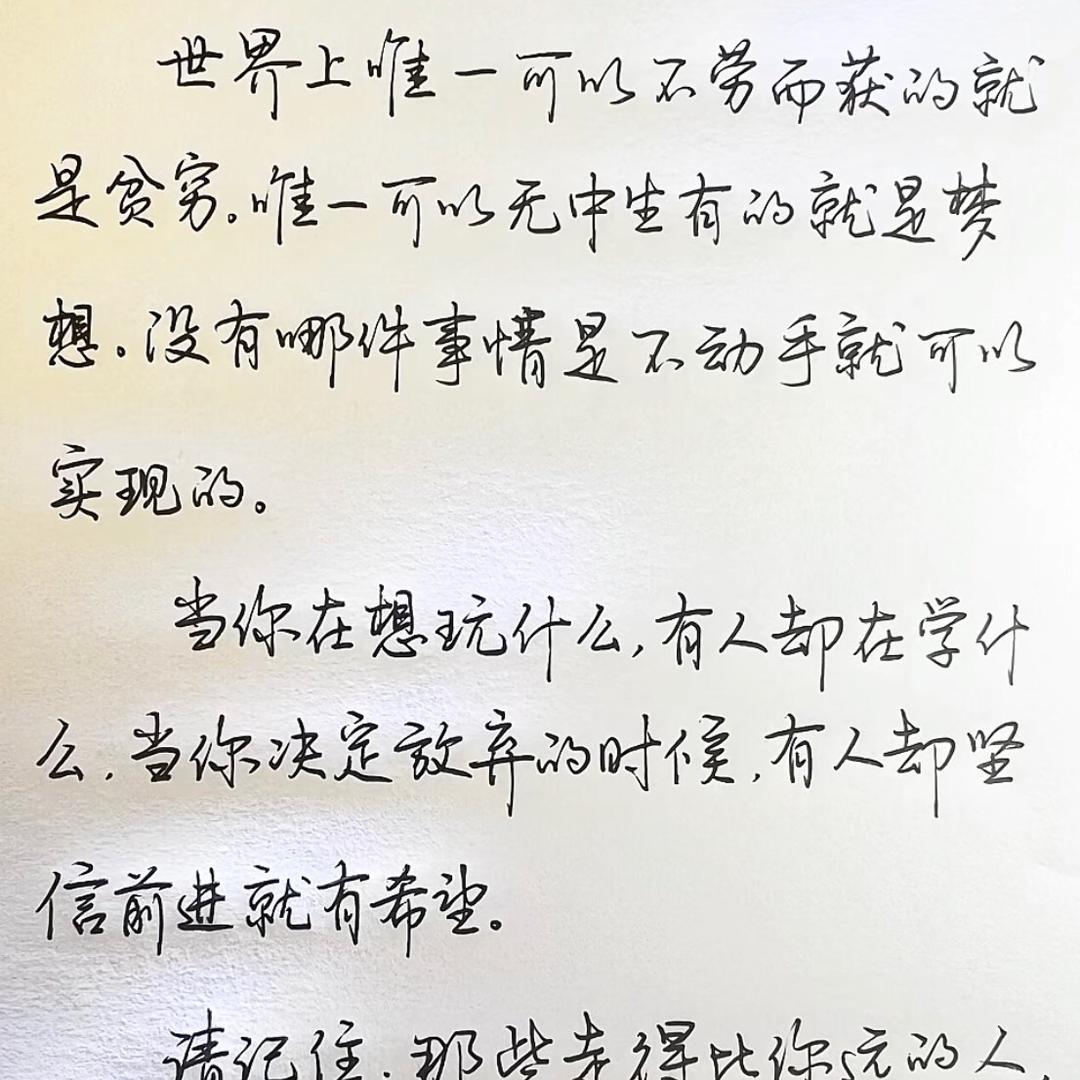 世界上唯一可以不劳而获的就
是贫穷。唯一可以无中生有的就是梦
想。没有哪件事情是不动手就可以
实现的。
当你在想玩什么,有人却在学什
么,当你决定放弃的时候,有人却坚
信前进就有希望。
请记住,那些走得比你远的人,